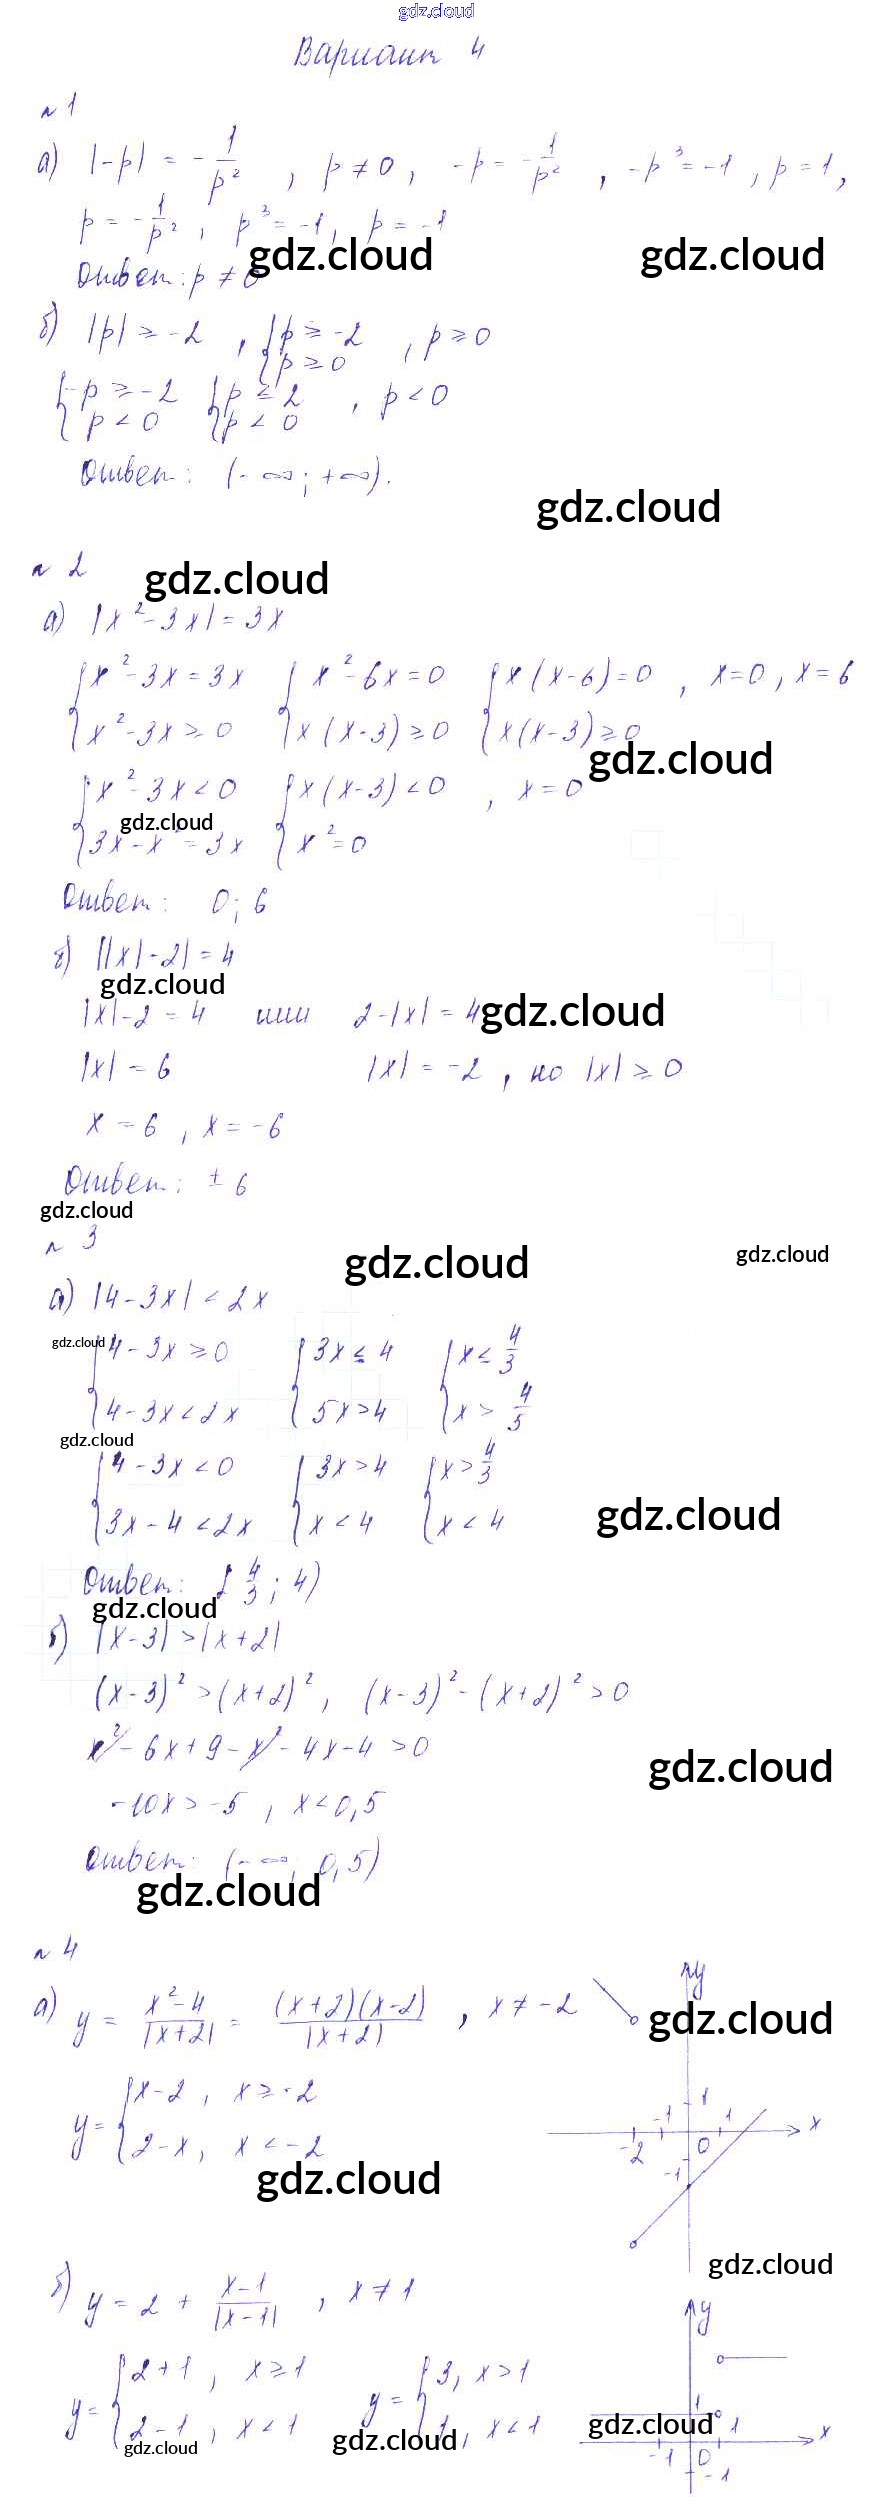 gdz.cloud
Вариант 4
n 1
а) |-p| = -1/p², p ≠ 0, -p = -1/p², -p³ = -1, p = 1,
p = -1/p², p³ = -1, p = -1
gdz.cloud gdz.cloud
Ответ: p ≠ 0
б) |p| ≥ -2, {p ≥ -2 {p ≥ 0, p ≥ 0
{-p ≥ -2 {p < 0 {p ≤ 2 {p < 0, p < 0
Ответ: (-∞; +∞).
gdz.cloud
n 2 gdz.cloud
а) |x² - 3x| = 3x
{x² - 3x = 3x {x² - 6x = 0 {x(x-6) = 0, x = 0, x = 6
{x² - 3x ≥ 0 {x(x-3) ≥ 0 {x(x-3) ≥ 0
gdz.cloud
{x² - 3x < 0 {x(x-3) < 0, x = 0
gdz.cloud
{3x - x² = 3x {x² = 0
Ответ: 0; 6
б) ||x| - 2| = 4
gdz.cloud
|x| - 2 = 4 или 2 - |x| = 4 gdz.cloud
|x| = 6 |x| = -2, но |x| ≥ 0
x = 6, x = -6
Ответ: ± 6
gdz.cloud
n 3
gdz.cloud gdz.cloud
а) |4 - 3x| < 2x
gdz.cloud
{4 - 3x ≥ 0 {3x ≤ 4 {x ≤ 4/3
{4 - 3x < 2x {5x > 4 {x > 4/5
gdz.cloud
{4 - 3x < 0 {3x > 4 {x > 4/3
{3x - 4 < 2x {x < 4 {x < 4
gdz.cloud
Ответ: [4/3; 4)
gdz.cloud
б) |x - 3| > |x + 2|
(x-3)² > (x+2)², (x-3)² - (x+2)² > 0
x² - 6x + 9 - x² - 4x - 4 > 0
gdz.cloud
-10x > -5, x < 0,5
Ответ: (-∞; 0,5)
gdz.cloud
n 4
а) y = x²-4/|x+2| = (x+2)(x-2)/|x+2|, x ≠ -2
gdz.cloud
y = {x-2, x ≥ -2
{2-x, x < -2
y
1
-1 1 x
-2 0
-1
gdz.cloud
gdz.cloud
б) y = 2 + x-1/|x-1|, x ≠ 1
y = {2+1, x ≥ 1 y = {3, x > 1
{2-1, x < 1 {1, x < 1
gdz.cloud gdz.cloud gdz.cloud
y
1
1 x
-1 0
-1